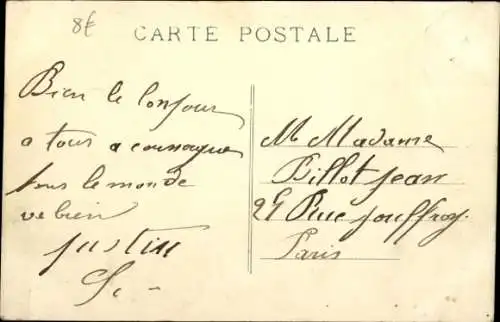 8€
CARTE POSTALE
Bien le bonjour
a tous a
tous le monde
va bien
Justin
M Madame
Billot Jean
29 Rue Jouffroy.
Paris